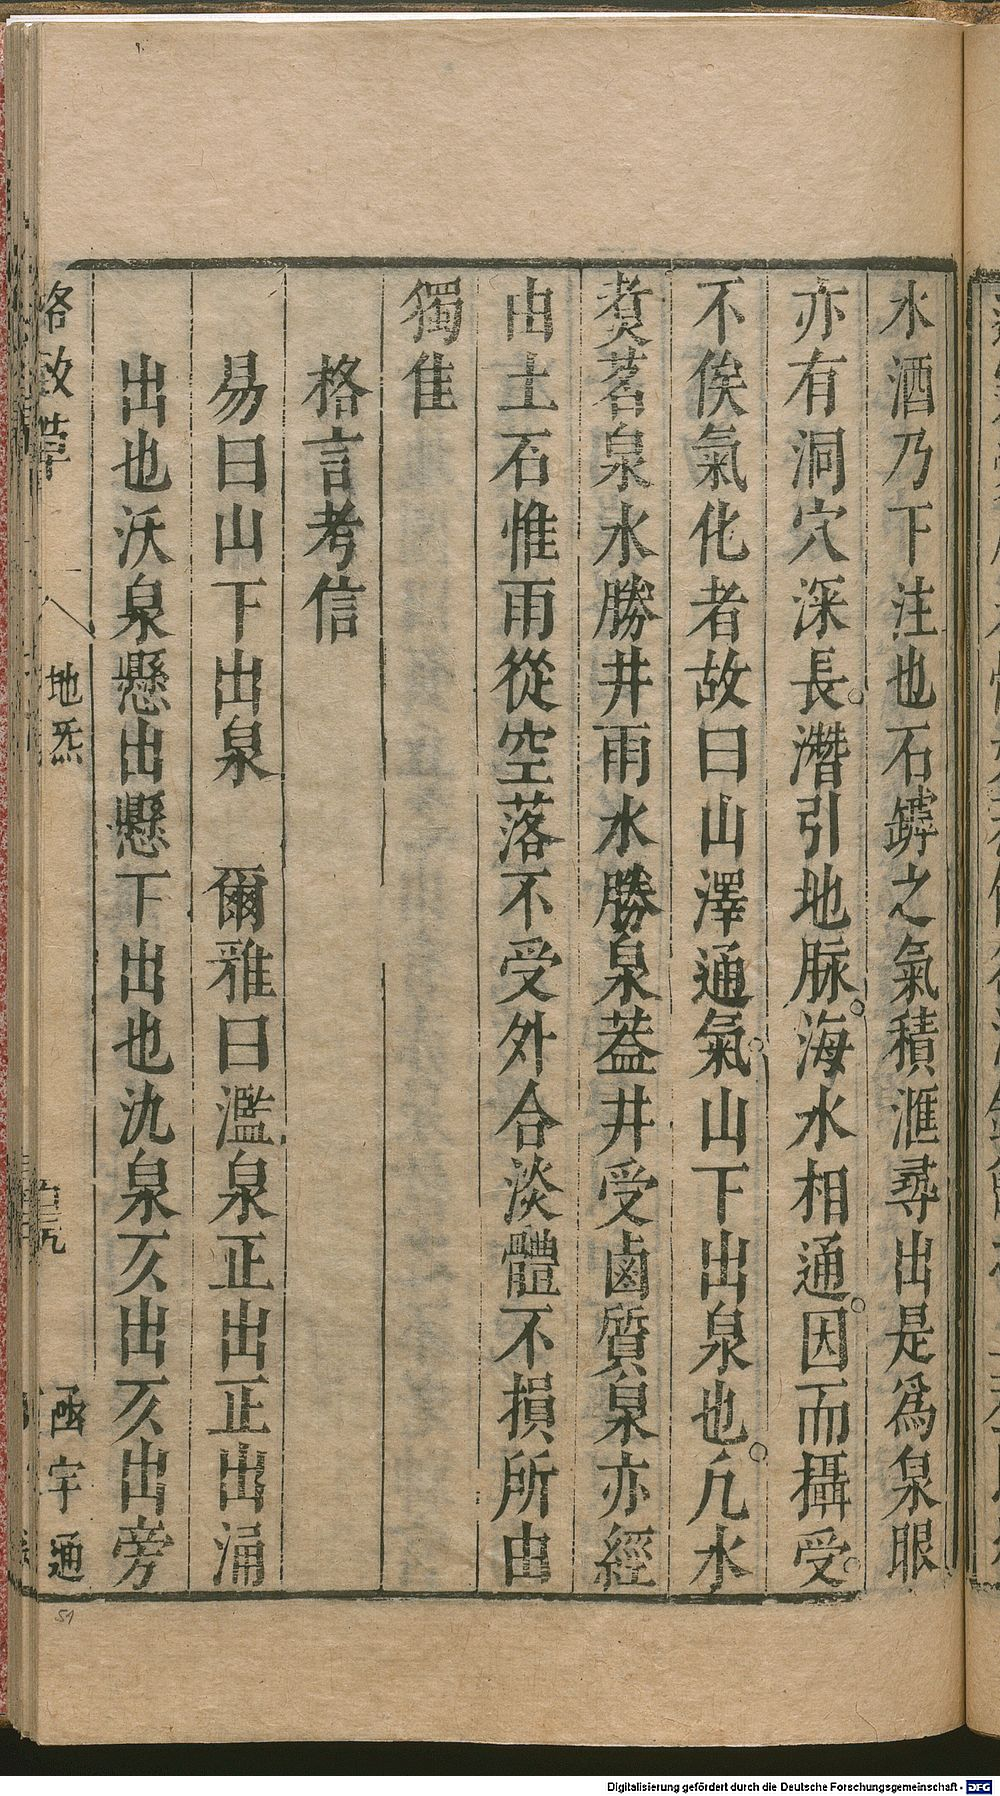 水酒乃下注也石罅之氣積滙尋出是爲泉眼
亦有洞穴深長潛引地脉海水相通因而攝受
不俟氣化者故曰山澤通氣山下出泉也凡水
煑茗泉水勝井雨水勝泉葢井受鹵質泉亦經
由土石惟雨從空落不受外合淡體不損所由
獨隹
格言考信
易曰山下出泉　爾雅曰濫泉正出正出涌
出也沃泉懸出懸下出也氿泉仄出仄出旁
格致草
地炁
函宇通
51
Digitalisierung gefördert durch die Deutsche Forschungsgemeinschaft - DFG